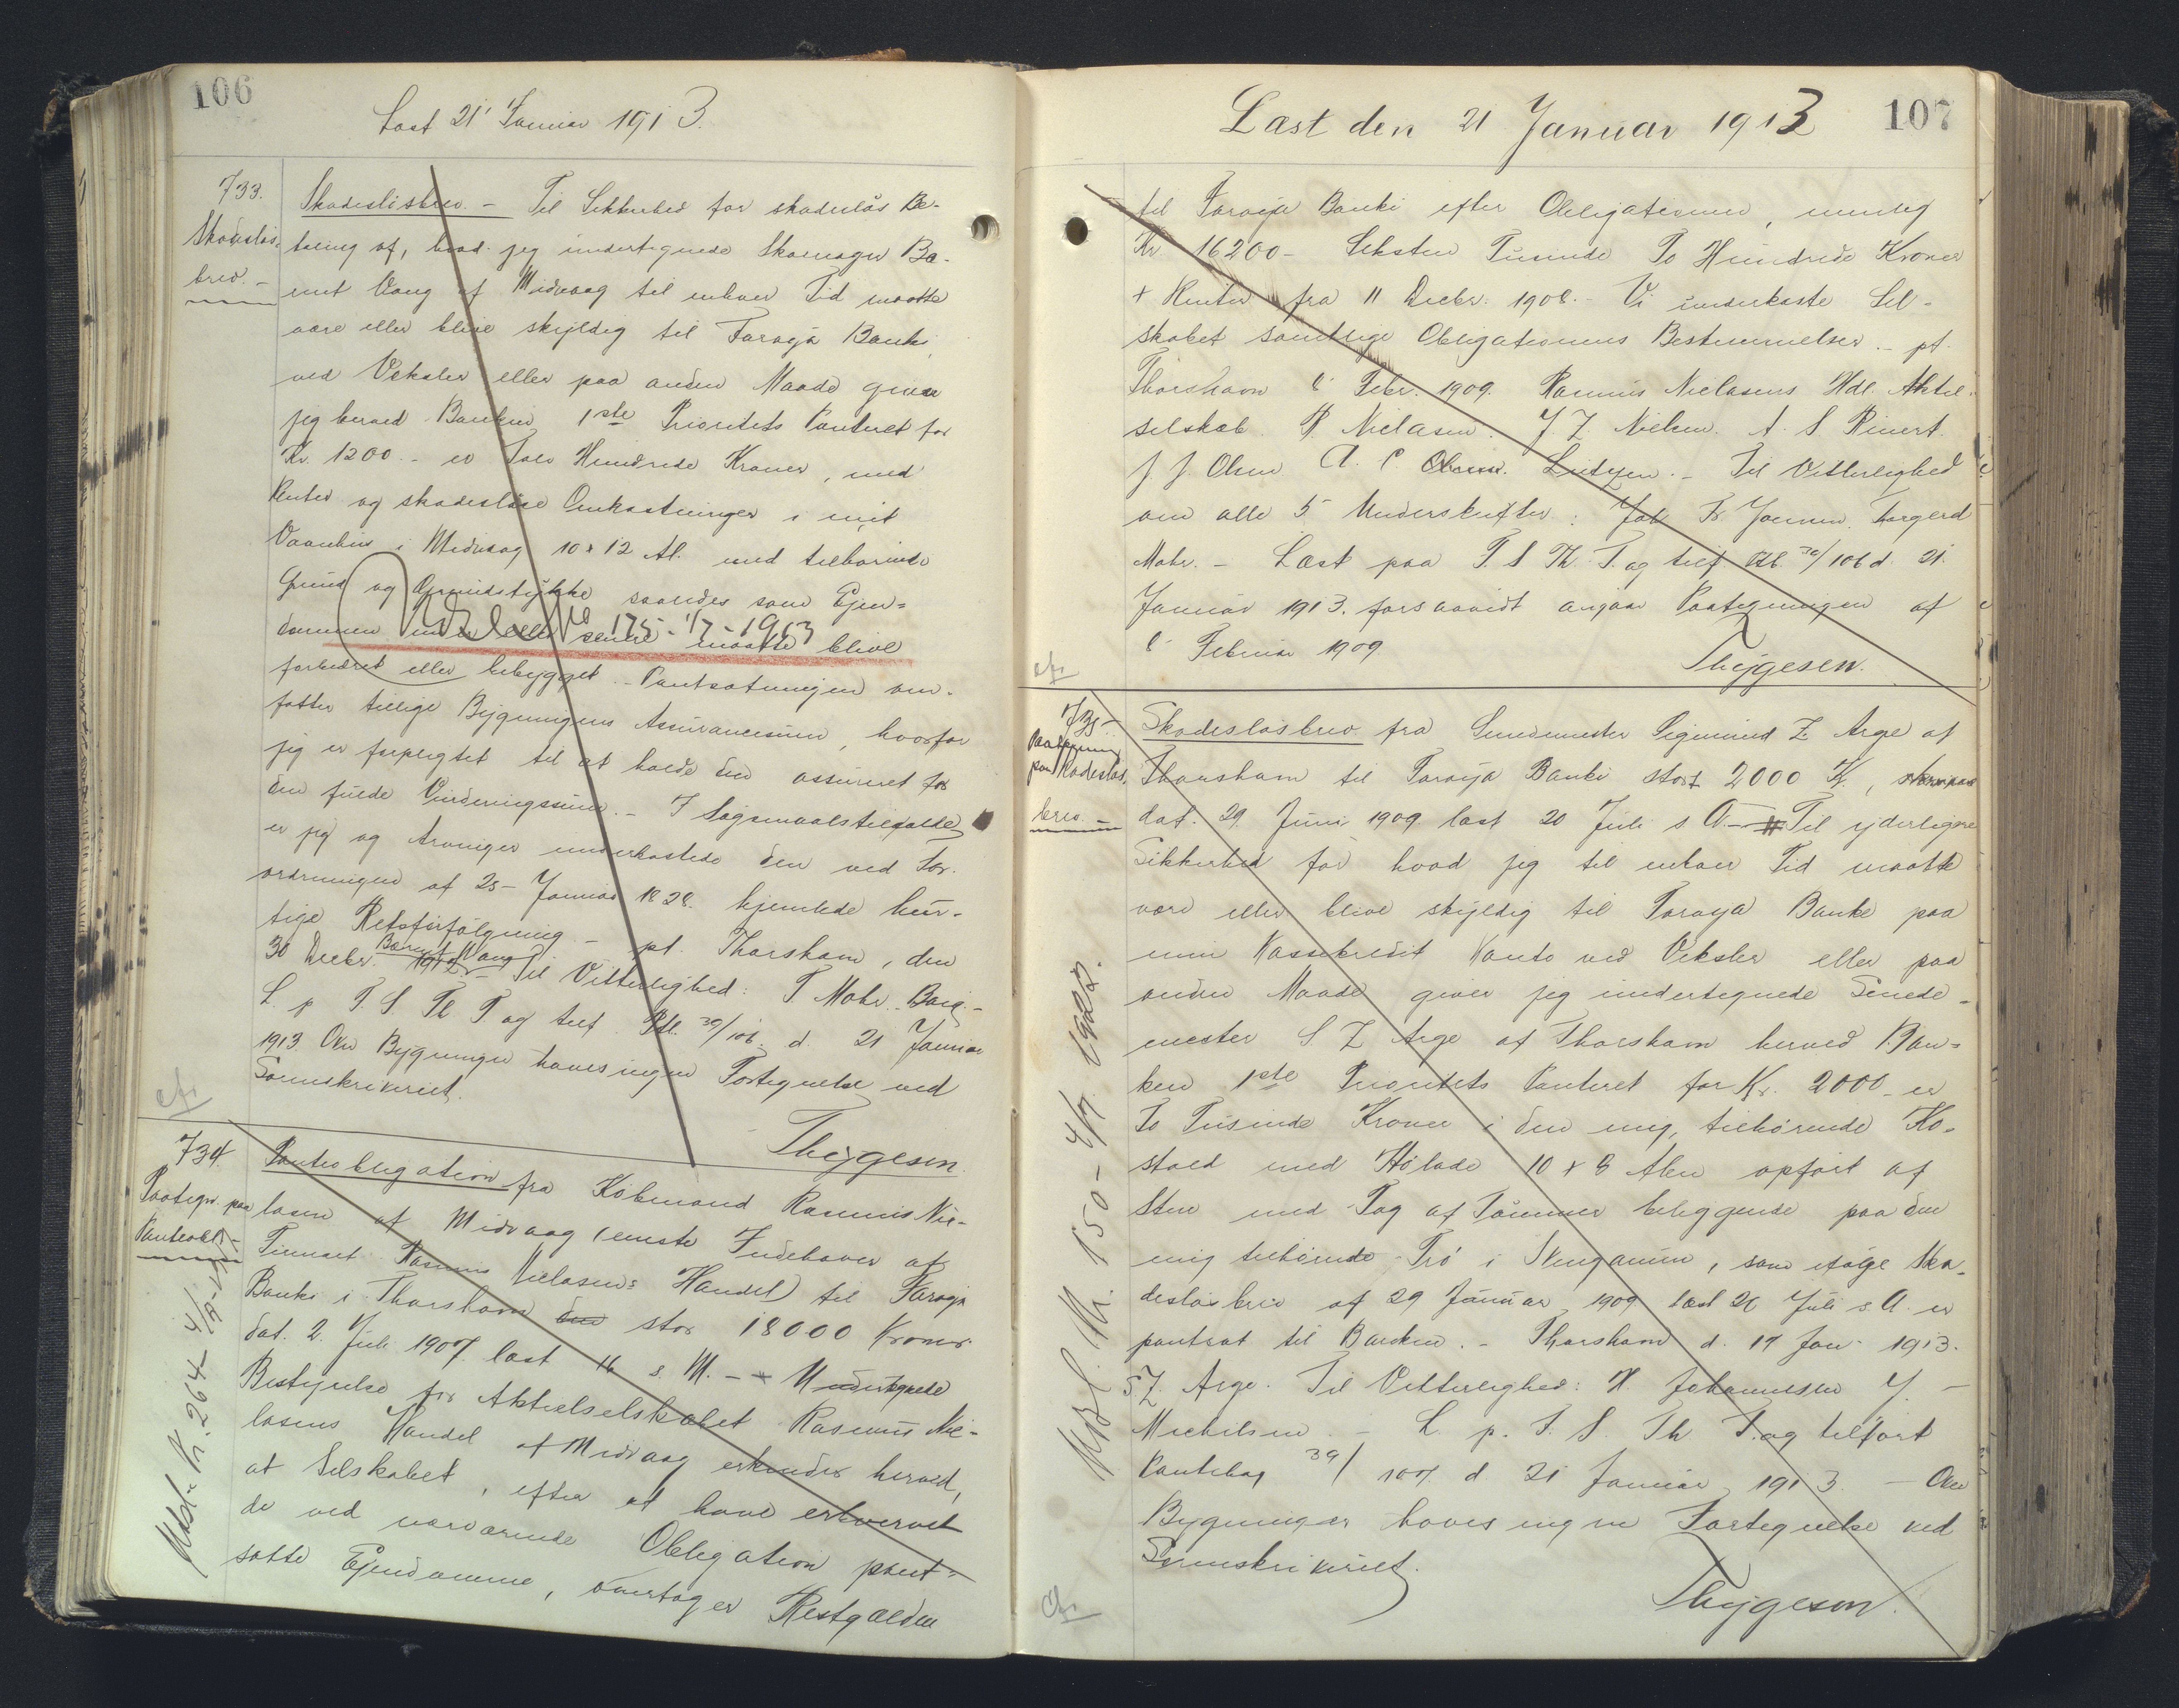 106
Læst 21' Januar 1913.
733.
Skadeslös-
brev. -
Skadeslösbrev. - Til Sikkerhed for skadeslös Be-
taling af, hvad jeg undertegnede Skomager Ba-
rent Vang af Midvaag til enhver Tid maatte
være eller blive skyldig til Føroya Banki,
ved Veksler eller paa anden Maade giver
jeg herved Banken 1ste Prioritets Panteret for
Kr. 1200 - er Tolv Hundrede Kroner, med
Renter og skadesløse Omkostninger i mit
Vaanhus i Midvaag 10 x 12 Al. med tilhørende
Grund og Grundstykke saavedes som Ejen=
dommen nu er eller senere maatte blive
Udsl. No 175 - 1/7 - 1963
forbedret eller bebygget. - Pantsætningen om-
fatter tillige Bygningens Assurancesum, hvorfor
jeg er forpligtet til at holde den assureret for
den fulde Vurderingssum. - I Søgsmaalstilfælde
er jeg og Arvinger underkastede den ved For-
ordningen af 25 - Januar 1828 hjemlede hur-
tige Retsforfølgning - pt. Thorshavn, den
30 Decbr. 1912 Barent Vang Til Vitterlighed: T Mohr. -
L. p T. S. Th T. og tilf. Ptb. 39/106 d. 21 Januar
1913. Over Bygningen haves ingen Fortegnelse ved
Sorenskriveriet.
Thygesen.
cf.
734.
Paategn. paa
Panteobl. -
Udsl. Nr. 264 - 4/
Panteobligation fra Købmand Rasmus Nie-
lasen af Midvaag (eneste Indehaver af
Firmaet Rasmus Nielasens Handel) til Føroya
Banki i Thorshavn den stor 18000 Kroner
dat. 2. Juli 1907. læst 16 s. M. - Undertegnede
Bestyrelse for Aktieselskabet Rasmus Nie-
lasens Handel af Midvaag erkender herved,
at Selskabet, efter at have erhvervet
de ved nærværende Obligation pant-
satte Ejendomme, overtager Restgælden
Læst den 21 Januar 1913
107
til Føroya Banki efter Obligationen, nemlig
Kr 16200 - Seksten Tusinde To Hundrede Kroner
+ Renter fra 11 Decbr. 1908. - Vi underkaste Sel-
skabet samtlige Obligationens Bestemmelser. - pt.
Thorshavn 8' Febr. 1909. Rasmus Nielasens Hdl. Aktie-
selskab. R Nielasen. J Z Nielsen. A. S Reinert.
J. J. Olsen A. C. Lützen. - Til Vitterlighed
om alle 5 Underskrifter: Jób Fr Joensen. Torgerd
Mohr. - Læst paa T. S Th. T. og tilf. Ptb. 39/106 d. 21.
Januar 1913. forsaavidt angaar Paategningen af
8' Februar 1909
Thygesen.
cf.
735 -
Paategning
paa Skadeslös.
brev. -
Udsl. Nr. 150 - 4/7. 1922.
Skadeslösbrev fra Smedemester Sigmund Z Arge af
Thorshavn til Føroya Banki stort 2000 K.,
dat. 29 Juni 1909 læst 20 Juli s A. - Til yderligere
Sikkerhed for hvad jeg til enhver Tid maatte
være eller blive skyldig til Føroya Banke paa
min Kassekredit Konto ved Veksler eller paa
anden Maade giver jeg undertegnede Smede-
mester S Z Arge af Thorshavn herved Ban=
ken 1ste Prioritets Panteret for Kr. 2000 - er
To Tusinde Kroner i den mig, tilhørende Ko-
stald med Hølade 10 x 8 Alen opført af
Sten med Tag af Tömmer beliggende paa den
mig tilhørende Trø i Stenganum, som ifølge Ska-
deslösbrev af 29 Januar 1909 læst 20 Juli s. A. er
pantsat til Banken. - Thorshavn d. 17 Jan - 1913.
S. Z. Arge. Til Vitterlighed: H. Johannesen J. -
Michelsen - L. p. T. S. Th T. og tilført
Pantebog 39/107. d. 21 Januar 1913 - Over
Bygningen haves ingen Fortegnelse ved
Sorenskriveriet.
Thygesen.
cf.